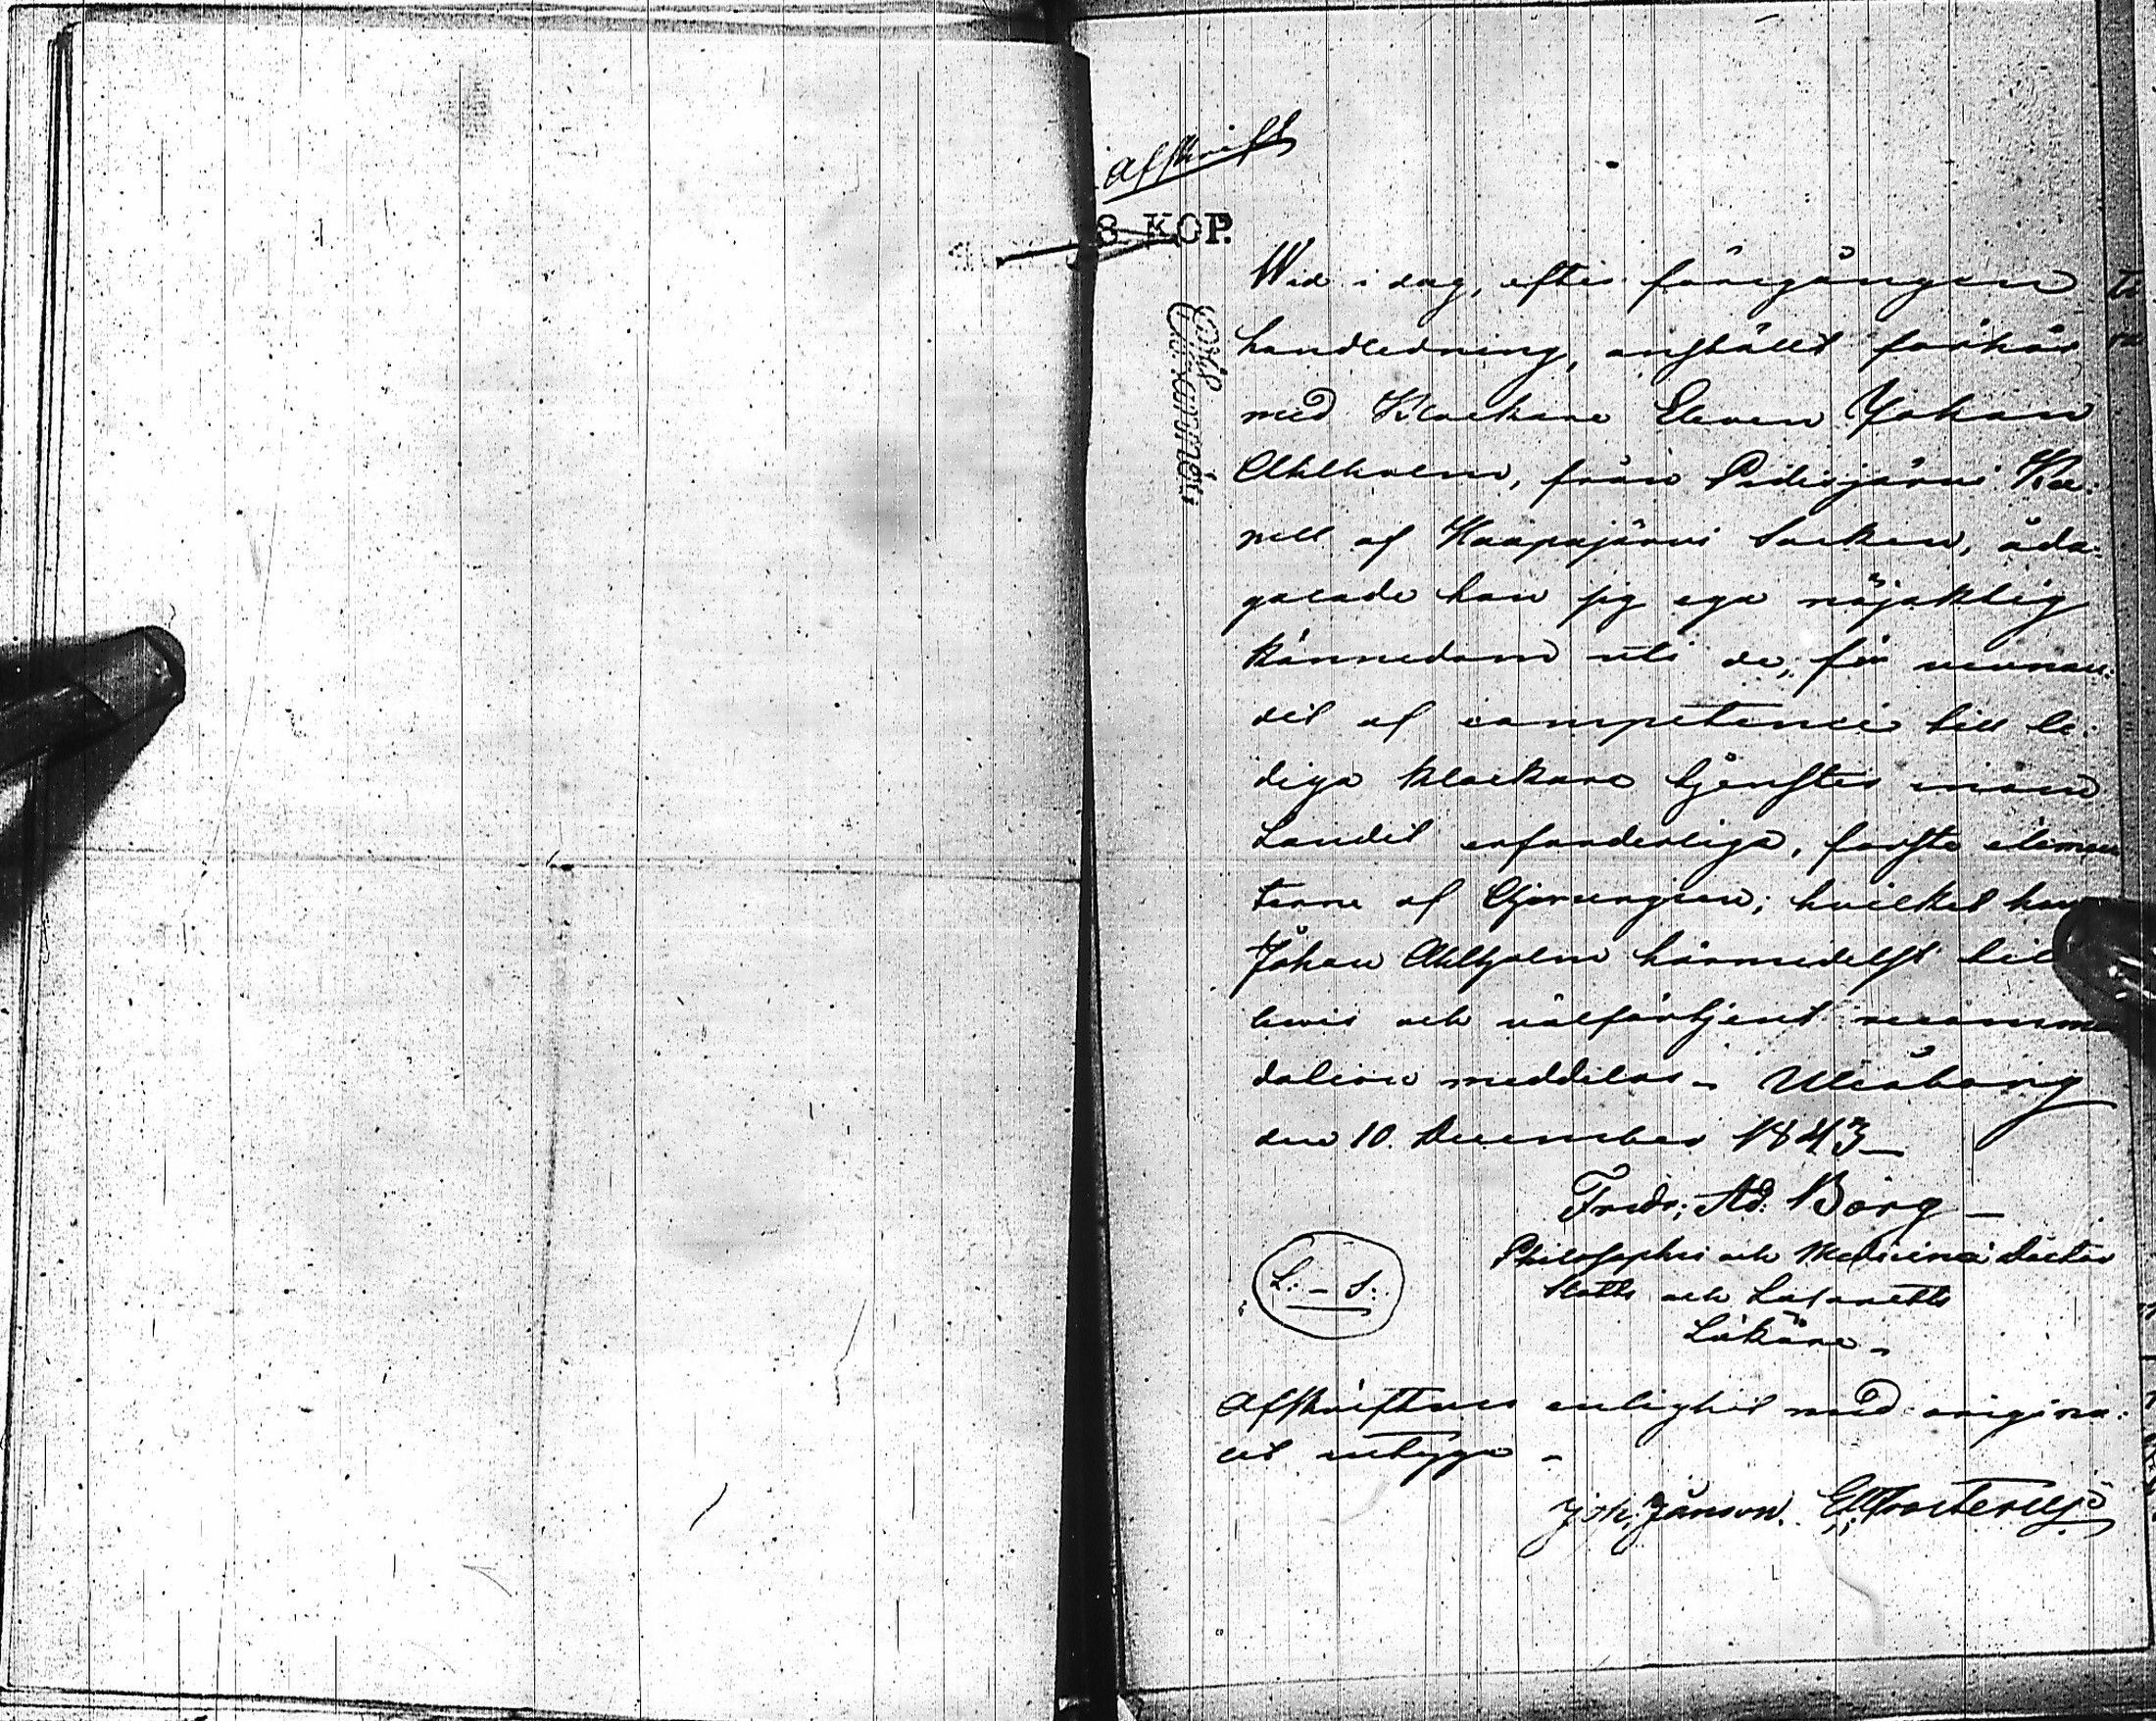 Affskrift
8 KOP.
Wid i dag, efter föregången
handledning, anställt förhör
med Klockare Eleven Johan
Ahlholm, från Pidisjärvi Ka-
pell af Haapajärvi Socken, åda-
galade han sig ega nöjaktig
kännedom uti de, för vinnan-
det af competence till le-
diga klockare tjenster inom
Landet erforderliga, första elemen
terne af Chirurgien; hvilket han
Johan Ahlholm härmedelst till
bevis och välförtjent recomme
dation meddelas. Uleåborg
den 10. December 1843 –
Fredr; Ad: Borg –
Philosophie och Medicine doctor
Slotts och Lasaretts
Läkare –
L. – S.
Affskriftens enlighet med origina-
let intyga –
Joh: Jånson.